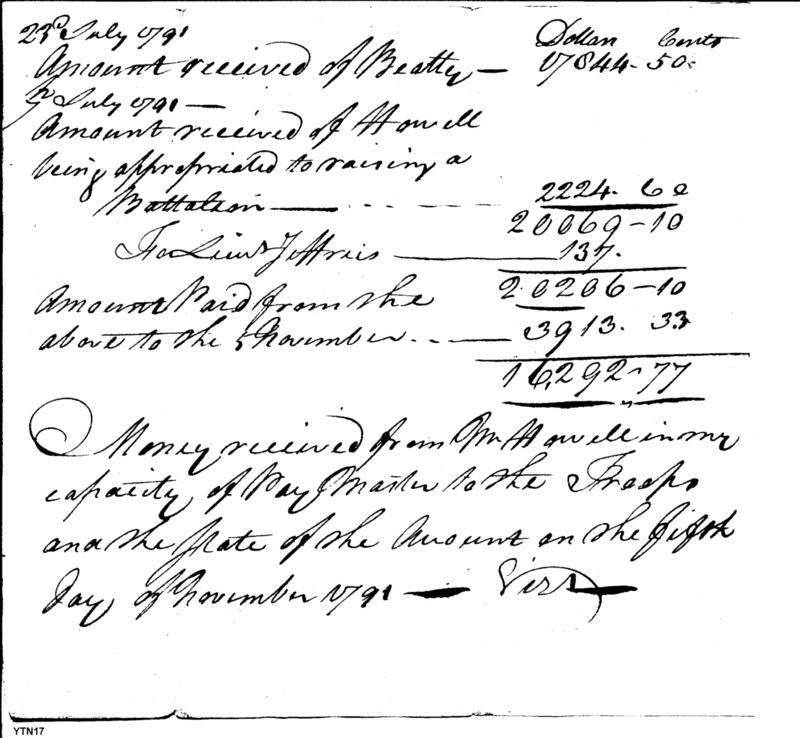 23d July 1791 Dollars Cents
Amount received of Beatty — 17844. 50.
July 1791 —
Amount received of Howell
being appropriated to raising a
Battalion — 2224. 60
20069 - 10
To Lieut Jeffries — 137.
20206 - 10
Amount Paid from the
above to the 5 November — 3913. 33
16,292 - 77
Money received from Mr Howell in my
capacity of Pay Master to the Troops
and the State of the Account on the fifth
Day of November 1791 — Vizt
YTN17